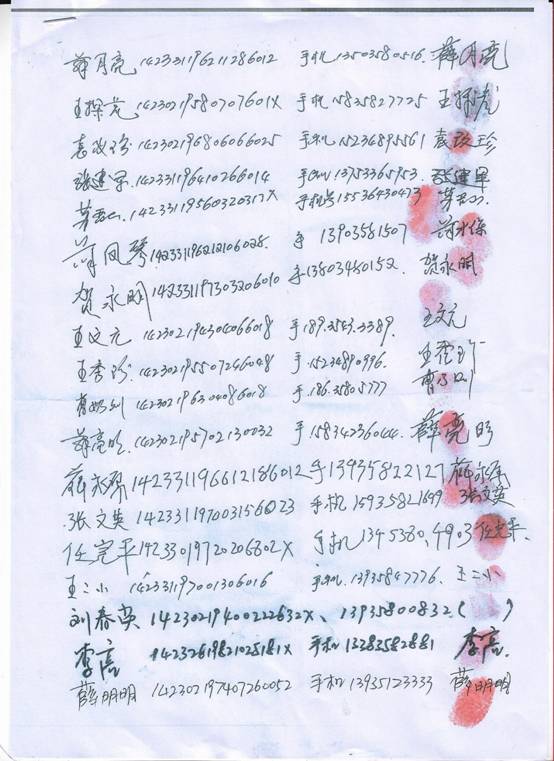 薛月亮 142331196211286012 手机 13503580516. 薛月亮
王探龙 14230219580707601X 手机 15835827725 王探龙
袁改珍 142302196806066025 手机 15234895561 袁改珍
张建军 142331196410266014 手机 13753365753. 张建军
14233119560320317X 手机号 15536430473
薛凤琴 142331196212106028. 手 13903581507
贺永明 142331197303206010 手 13803480152. 贺永明
王文元 142302194304066018 手 189.3543.3389. 王文元
王秀珍 142302195507246048 手 15234890996. 王秀珍
142302196304086018 手 186.3580.5777
薛亮明 142302195702130032 手 15834236044. 薛亮明
142331196612186012 手 13935822127
张文英 142331197003156023 手机 15935821699 张文英
任完平 14233019720206802X 手机 1345380,4903 任完平.
王二小 142331197001306016 手机. 13935847776. 王二小
刘春英 14230219400222632X、13935800832.( )
李亮 14232619821025181X 手机 13383582881 李亮.
薛明明 142302197407260052 手机 13935123333 薛明明